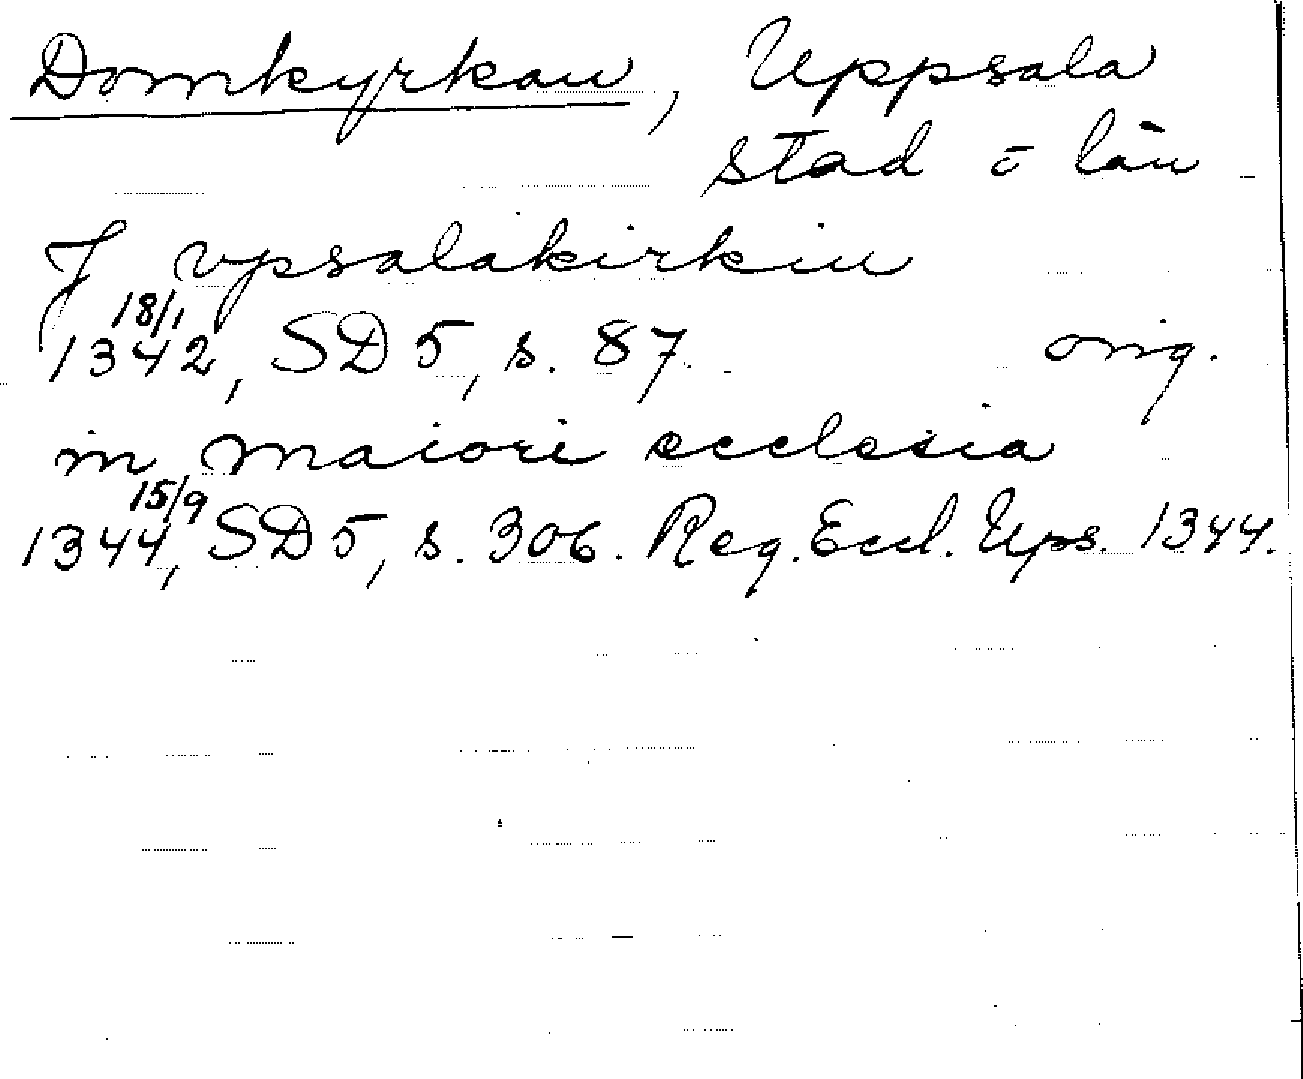 Domkyrkan, Uppsala
stad o län
J vpsalakirkiu
18/1
1342, SD 5, s. 87. orig.
in maiori ecclesia
15/9
1344, SD 5, s. 306. Reg. Eccl. Ups. 1344.